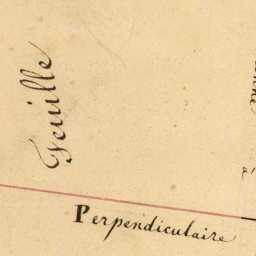 Feuille
Perpendiculaire